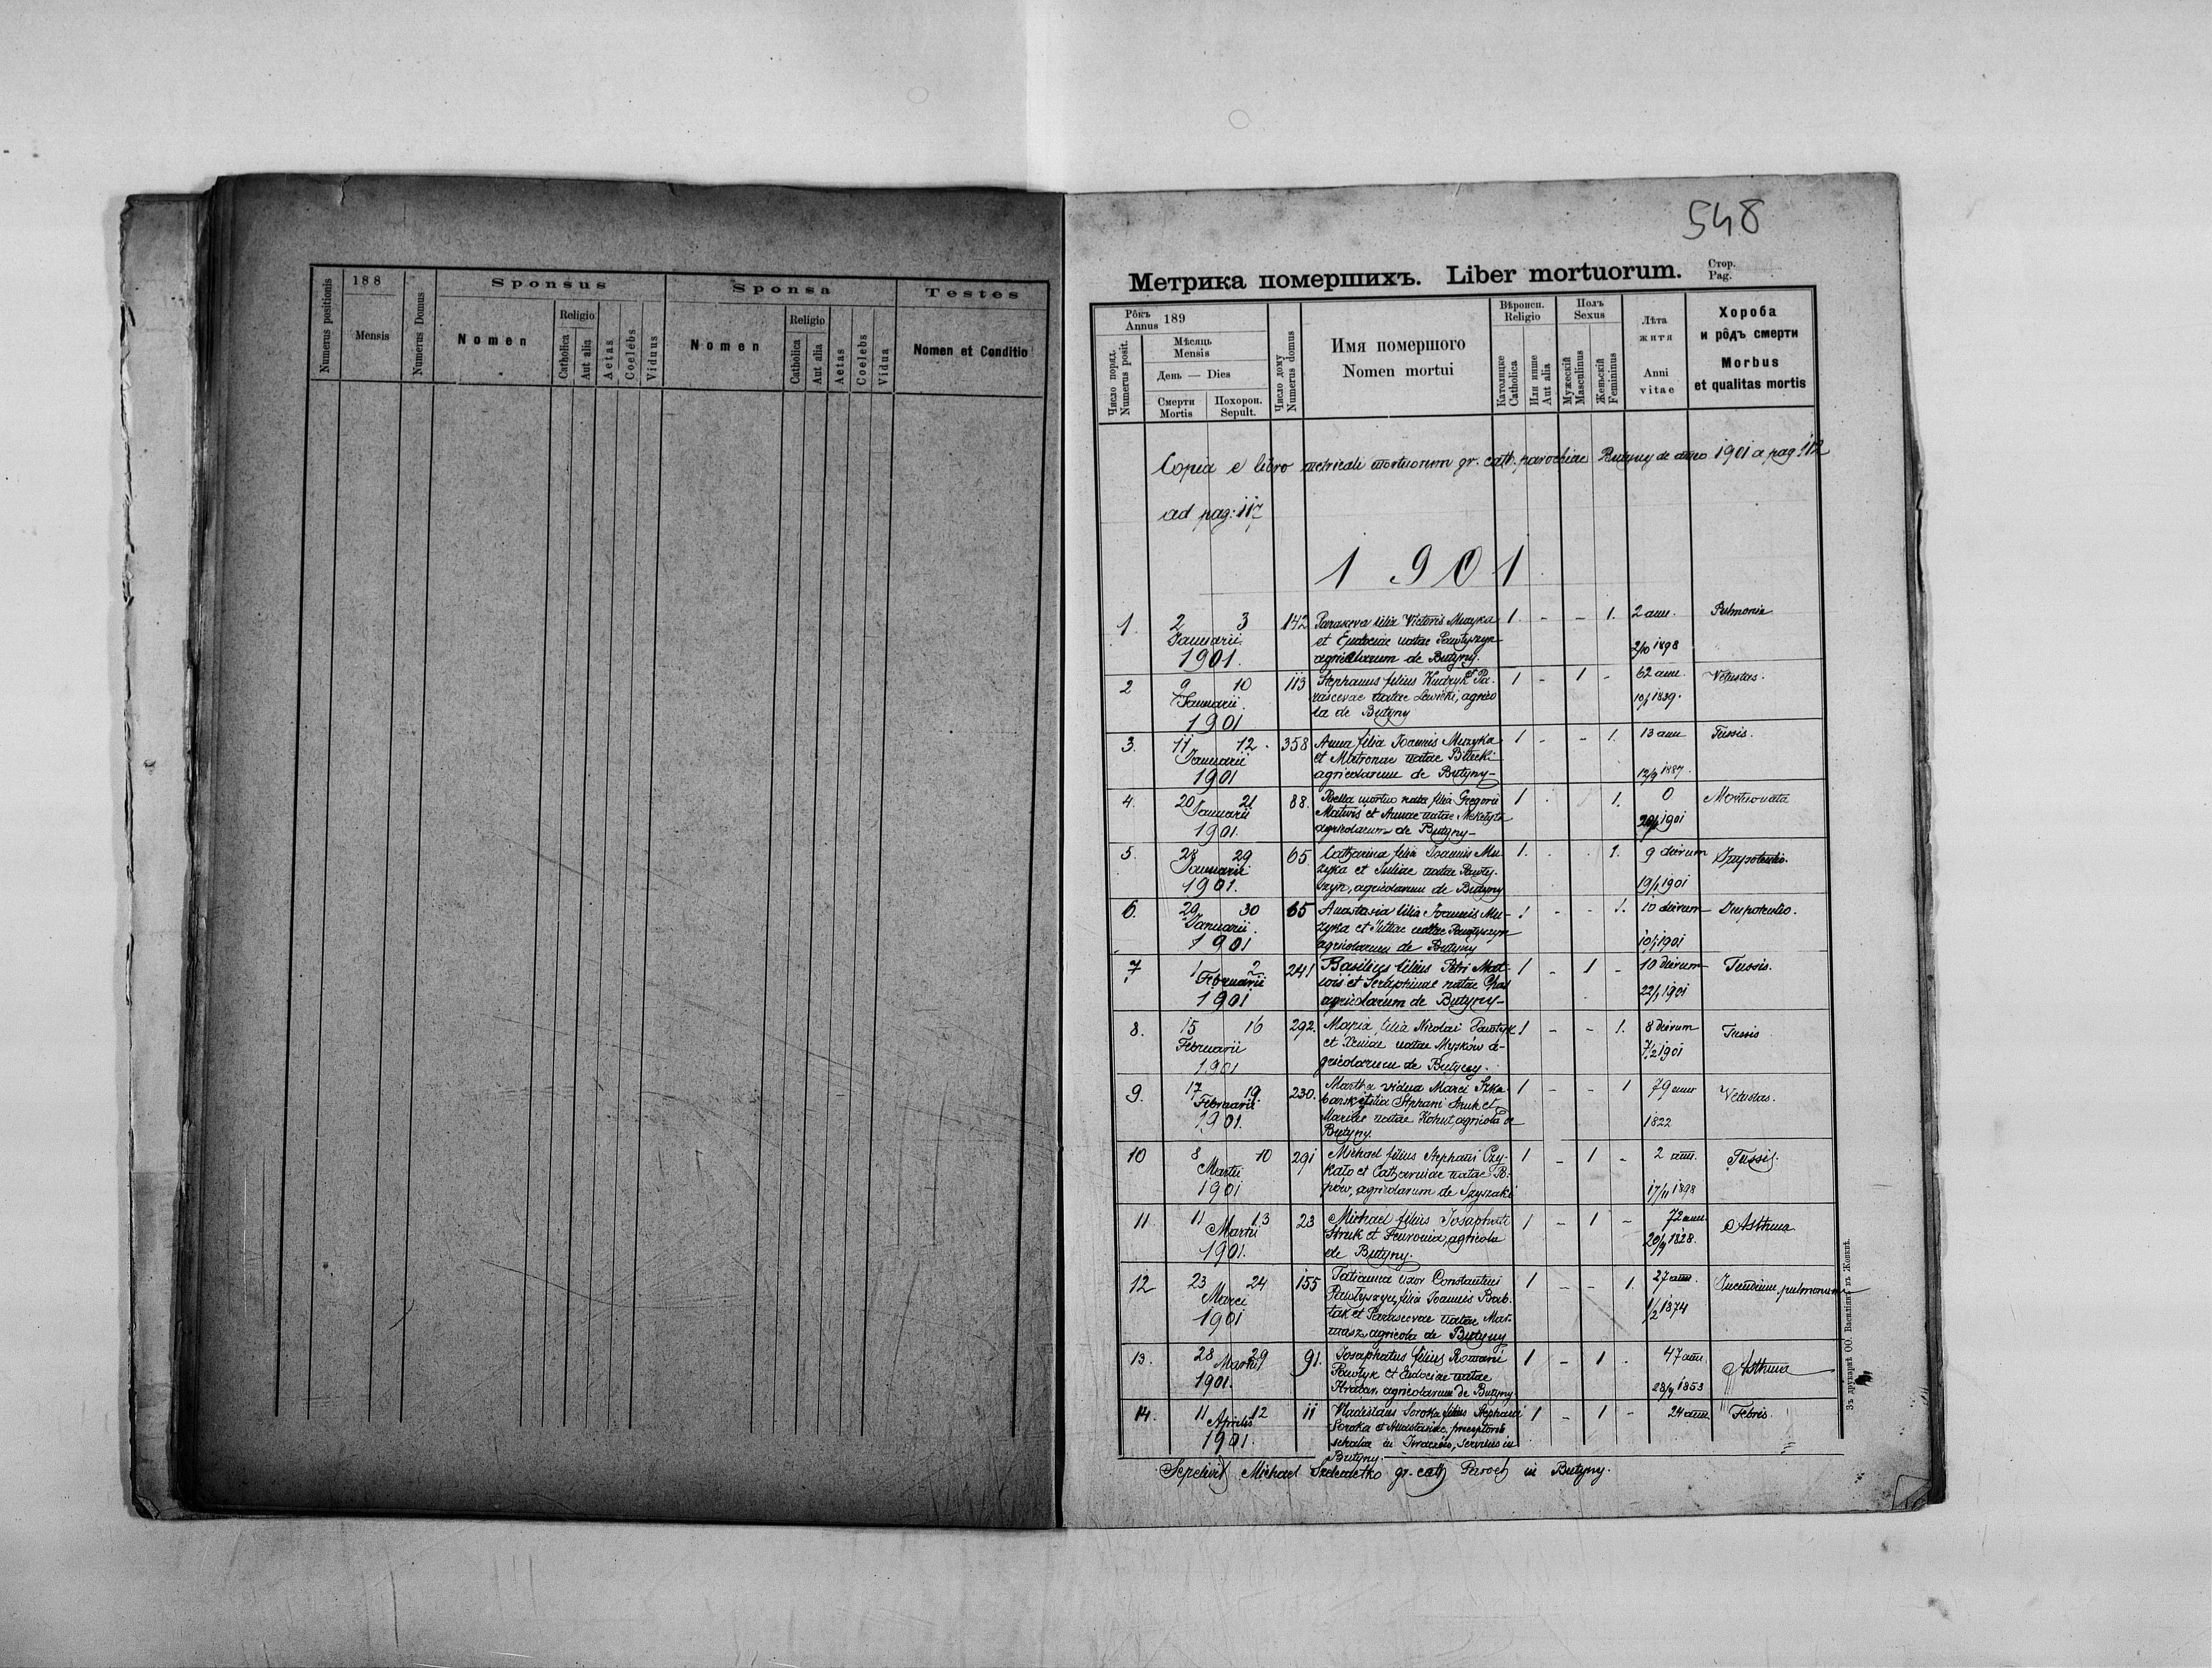 Numerus positionis
188
Mensis
Numerus Domus
Sponsus
Nomen
Religio
Catholica
Aut alia
Aetas
Coelebs
Viduus
Sponsa
Nomen
Religio
Catholica
Aut alia
Aetas
Coelebs
Vidua
Testes
Nomen et Conditio
548
Метрика помершихъ. Liber mortuorum.
Стор.
Pag.
Рôкъ
Annus 189
Число поряд.
Numerus posit.
Мѣсяць
Mensis
День — Dies
Смерти
Mortis
Похорон.
Sepult.
Число дому
Numerus domus
Имя помершого
Nomen mortui
Вѣроисп.
Religio
Католицке
Catholica
Или инше
Aut alia
Полъ
Sexus
Мужескій
Masculinus
Женьскій
Femininus
Лѣта
житя
Anni
vitae
Хороба
и рôдъ смерти
Morbus
et qualitas mortis
Copia e libro metricali mortuorum gr. cath. parochiae Butyny de anno 1901 a pag. 112
ad pag: 117
1901
1. 2 3 142 Parasceva filia Victoris Muzyka 1. - - 1. 2 ann. Pulmonia
Januarii et Eudociae natae Pawłyszyn
1901. agricolarum de Butyny. 2/10 1898
2 9 10 113 Stephanus filius Kudryk et Pa- 1 - 1 - 62 ann. Vetustas.
Januarii. rascevae natae Lewicki, agrico
1901 la de Butyny
3. 11 12. 358 Anna filia Joannis Muzyka 1 - - 1. 13 ann Tussis.
Januarii et Matronae natae Bilecki
1901 agricolarum de Butyny- 12/9 1887.
4. 20 21 88. mortuo nata filia Gregorii 1 1. 0 Mortuonata
Januarii et Annae natae
1901. agricolarum de Butyny- 20/1 1901
5. 28 29 65. Catharina filia Joannis Mu 1. 1. 9 dierum
Januarii zyka et Juliae natae Pawły-
1901. szyn, agricolarum de Butyny 19/1 1901
6. 29 30 65 Anastasia filia Joannis Mu- 1 - - 1. 10 dierum Impotentio.
Januarii. zyka et Juliae natae Pawłyszyn
1901 agricolarum de Butyny 1901
7 1 2 241 Basilius filius Petri Mat 1 - 1 - 10 dierum Tussis.
Februarii wis et Seraphinae natae
1901 agricolarum de Butyny- 22/1 1901
8. 15 16 292. Maria filia Nicolai Pawłyk 1 - - 1. 8 dierum Tussis
Februarii et Xeniae natae Myzków a- 7/2 1901
1901 gricolarum de Butyny.
9. 17 19. 230. Martha vidua Marci 1 - - 1 79 ann Vetustas.
Februarii filia Stephani Struk et
1901. Mariae natae Kohut, agricola de 1822
Butyny.
10 8 10 291 Michael filius Stephani Czy- 1 - 1 - 2 ann. Tussis.
Martii kało et Catharinae natae Po-
1901 pów, agricolarum de Szyszaki 17/11 1898
11 11 13 23 Michael filius Josaphati 1 - 1 - 72 ann. Asthma
Martii Struk et Feuronia, agricola 20/9 1828.
1901. de Butyny.
12 23 24 155 Tatianna uxor Constantini 1 - - 1. 27 ann. Incendium pulmonum
Marci Pawłyszyn, filia Joannis Bab- 1/2 1874
1901 iak et Parascevae natae Mar-
masz, agricola de Butyny
13. 28 29 91. Josaphatus filius Romani 1 - 1 - 47 ann. Asthma
Martii Pawłyk et Eudociae natae
1901. agricolarum de Butyny 28/9 1853
14. 11 12 11 Vladislaus Soroka filius Stephani 1 - 1 - 24 ann. Febris.
Aprilis Soroka et Anastasiae, praeceptoris
1901. scholae in servilis in
Butyny.
Sepelivit Michael gr. cath Paroch in Butyny.
Зъ друкарнѣ ОО. Василіянъ въ Жовквѣ.